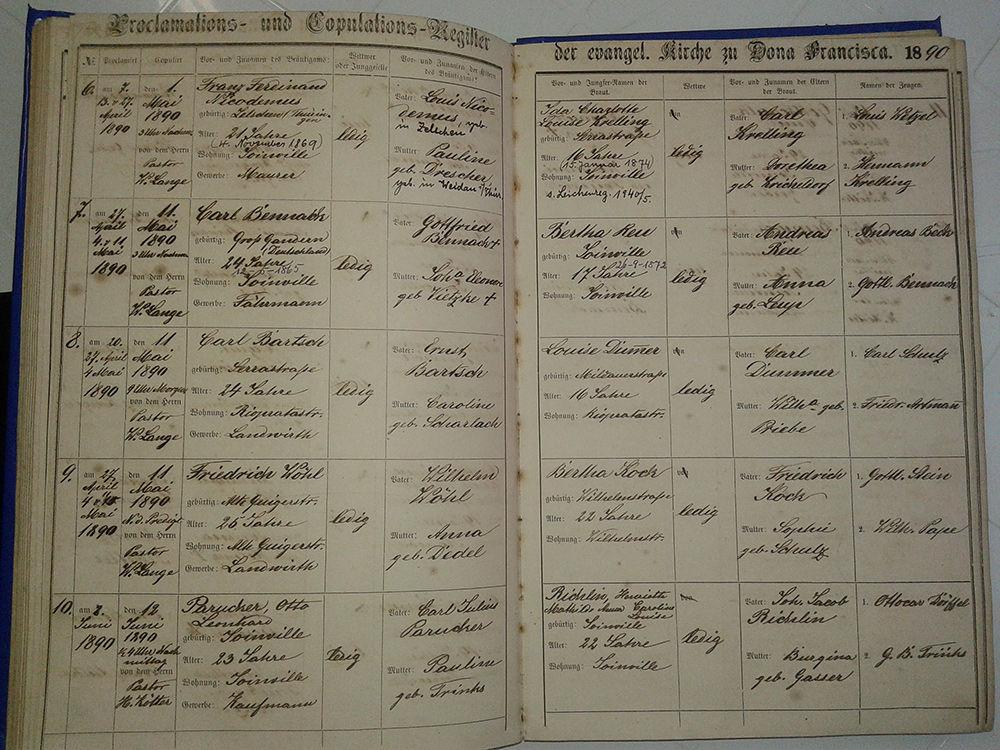 Proclamations- und Copulations-Register
der evangel. Kirche zu Dona Francisca. 1890
№
Proclamirt
Copulirt
Vor- und Zunamen des Bräutigams:
Wittwer oder Junggeselle
Vor- und Zunamen der Eltern des Bräutigams:
Vor- und Jungfer-Namen der Braut.
Wittwe
Vor- und Zunamen der Eltern der Braut.
Namen der Zeugen:
6.
am 7.
13. u 27.
April
1890
den 1.
Mai
1890
3 Uhr Nachm.
von dem Herrn
Pastor
W. Lange
Franz Ferdinand
Nicodemus
gebürtig:
Alter: 21 Jahre
(4. November 1869)
Wohnung: Joinville
Gewerbe: Maurer
ledig
Vater: Louis Nico-
demus, geb.
in
Mutter: Pauline
geb. Drescher
geb. in
Ida Charlotte
Louise Krelling
gebürtig: Serrastraße
Alter: 16 Jahre
15. Januar 1874
Wohnung: Joinville
s. Leichenreg. 1940/5
von
ledig
Vater: Carl
Krelling
Mutter: Dorothea
geb.
1. Louis Wetzel
2. Hermann
Krelling
7.
am 27.
April
4. u 11.
Mai
1890
den 11.
Mai
1890
3 Uhr Nachm.
von dem Herrn
Pastor
W. Lange
Carl Bennack
gebürtig: Groß Gandern
(Deutschland)
Alter: 24 Jahre
1865
Wohnung: Joinville
Gewerbe: Fährmann
ledig
Vater: Gottfried
Bennack +
Mutter: Joh.a Eleonore
geb Vietzke +
Bertha Reu
gebürtig: Joinville
26-9-1872
Alter: 17 Jahre
Wohnung: Joinville
von
ledig
Vater: Andreas
Reu
Mutter: Anna
geb.
1. Andreas Beck
2. Gottl. Bennack
8.
am 20.
27. April
4 Mai
1890
den 11
Mai
1890
9 Uhr Morgen
von dem Herrn
Pastor
W. Lange
Carl Bartsch
gebürtig: Serrastraße
Alter: 24 Jahre
Wohnung:
Gewerbe: Landwirth
ledig
Vater: Ernst
Bartsch
Mutter: Caroline
geb. Scharlach
Louise Dummer
gebürtig: Mildauerstraße
Alter: 16 Jahre
Wohnung:
von
ledig
Vater: Carl
Dummer
Mutter: Wilh.a geb.
Briebe
1. Carl Schulz
2. Friedr. Artmann
9.
am 27.
April
4 u 11.
Mai
1890
den 11
Mai
1890
N. d. Predigt
von dem Herrn
Pastor
W. Lange
Friedrich Wöhl
gebürtig: Alte Guigerstr.
Alter: 26 Jahre
Wohnung: Alte Guigerstr.
Gewerbe: Landwirth
ledig
Vater: Wilhelm
Wöhl
Mutter: Anna
geb. Didel
Bertha Koch
gebürtig: Wilhelmstraße
Alter: 22 Jahre
Wohnung: Wilhelmstr.
von
ledig
Vater: Friedrich
Koch
Mutter: Sophie
geb. Schulz
1. Gottl. Stein
2. Wilh. Pape
10.
am 2.
Juni
1890
den 12
Juni
1890
4 Uhr Nach
mittag
von dem Herrn
Pastor
H. Kötter
Parucker, Otto
Leonhard
gebürtig: Joinville
Alter: 23 Jahre
Wohnung: Joinville
Gewerbe: Kaufmann
ledig
Vater: Carl Julius
Parucker
Mutter: Pauline
geb. Trinks
Richlin, Henriette
Mathilde Anna Caroline
Louise
gebürtig: Joinville
Alter: 22 Jahre
Wohnung: Joinville
von
ledig
Vater: Joh. Jacob
Richlin
Mutter: Burgina
geb. Gasser
1. Ottocar Döffel
2. G. B. Trinks